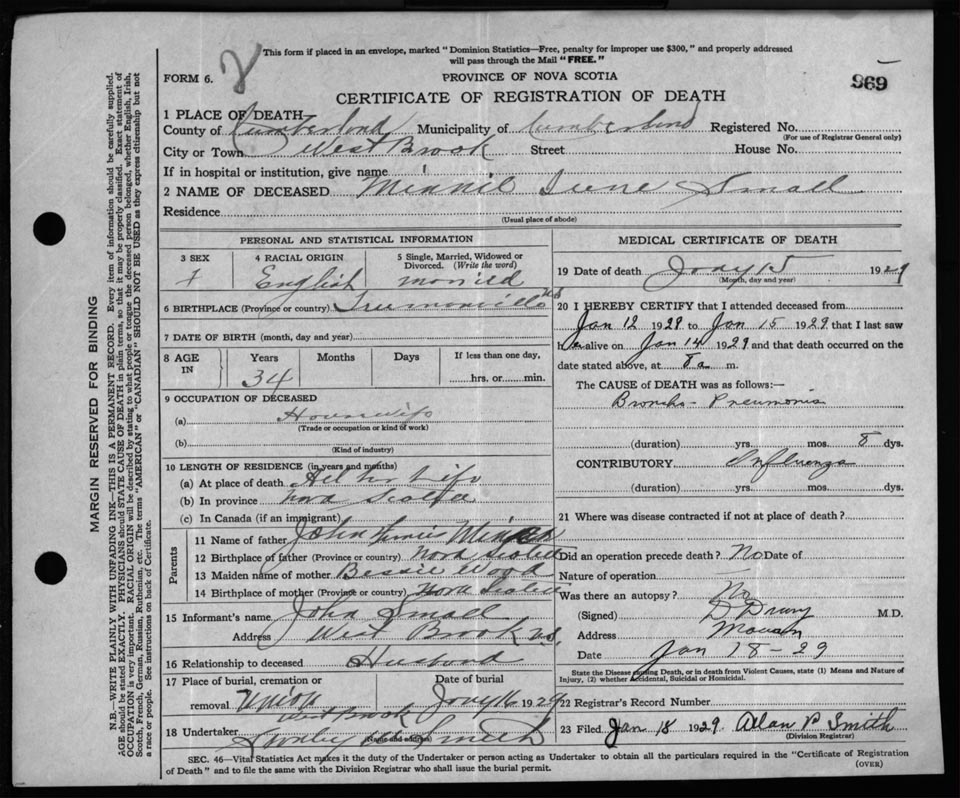 This form if placed in an envelope, marked "Dominion Statistics—Free, penalty for improper use $300," and properly addressed
will pass through the Mail "FREE."
FORM 6. 2
PROVINCE OF NOVA SCOTIA
969
CERTIFICATE OF REGISTRATION OF DEATH
1 PLACE OF DEATH—
County of Cumberland Municipality of Cumberland Registered No.
(For use of Registrar General only)
City or Town West Brook Street House No.
If in hospital or institution, give name
2 NAME OF DECEASED Minnie Irene Small
Residence
(Usual place of abode)
PERSONAL AND STATISTICAL INFORMATION
3 SEX 4 RACIAL ORIGIN 5 Single, Married, Widowed or Divorced. (Write the word)
f English married
6 BIRTHPLACE (Province or country) N.S.
7 DATE OF BIRTH (month, day and year)
8 AGE IN Years Months Days If less than one day,
34 hrs. or min.
9 OCCUPATION OF DECEASED
(a) Housewife
(Trade or occupation or kind of work)
(b)
(Kind of industry)
10 LENGTH OF RESIDENCE (in years and months)
(a) At place of death All her Life
(b) In province Nova Scotia
(c) In Canada (if an immigrant)
Parents
11 Name of father John
12 Birthplace of father (Province or country) Nova Scotia
13 Maiden name of mother Bessie Wood
14 Birthplace of mother (Province or country) Nova Scotia
15 Informant's name John Small
Address West Brook N.S.
16 Relationship to deceased Husband
17 Place of burial, cremation or Date of burial
removal Union West Brook Jany 16 1929
18 Undertaker Smith
(Name and address)
MEDICAL CERTIFICATE OF DEATH
19 Date of death Jany 15 1929
(Month, day and year)
20 I HEREBY CERTIFY that I attended deceased from
Jan 12 1929 to Jan 15 1929 that I last saw
her alive on Jan 14 1929 and that death occurred on the
date stated above, at 8 a m.
The CAUSE OF DEATH was as follows:—
Broncho-Pneumonia
(duration) yrs. mos. 8 dys.
CONTRIBUTORY Influenza
(duration) yrs. mos. dys.
21 Where was disease contracted if not at place of death?
Did an operation precede death? No Date of
Nature of operation
Was there an autopsy? No
(Signed) D Drury M.D.
Address
Date Jan 18-29
State the Disease causing Death, or in death from Violent Causes, state (1) Means and Nature of
Injury, (2) whether Accidental, Suicidal or Homicidal.
22 Registrar's Record Number
23 Filed Jan 18 1929 Alan P Smith
(Division Registrar)
SEC. 46—Vital Statistics Act makes it the duty of the Undertaker or person acting as Undertaker to obtain all the particulars required in the "Certificate of Registration
of Death" and to file the same with the Division Registrar who shall issue the burial permit.
(OVER)
MARGIN RESERVED FOR BINDING
N.B.—WRITE PLAINLY WITH UNFADING INK—THIS IS A PERMANENT RECORD. Every item of information should be carefully supplied.
AGE should be stated EXACTLY. PHYSICIANS should STATE CAUSE OF DEATH in plain terms, so that it may be properly classified. Exact statement of
OCCUPATION is very important. RACIAL ORIGIN will be described by stating to what people or tongue the deceased person belonged, whether English, Irish,
Scotch, French, German, Russian, Ruthenian, etc. The terms "AMERICAN" or "CANADIAN" SHOULD NOT BE USED as they express citizenship but not
a race or people. See instructions on back of Certificate.